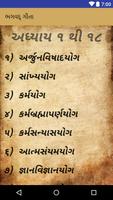 ભગવદ્ ગીતા
અધ્યાય ૧ થી ૧૮
૧) અર્જુનવિષાદયોગ
૨) સાંખ્યયોગ
૩) કર્મયોગ
૪) કર્મબ્રહ્માપર્ણયોગ
૫) કર્મસન્યાસયોગ
૬) આત્મસંયમયોગ
૭) જ્ઞાનવિજ્ઞાનયોગ